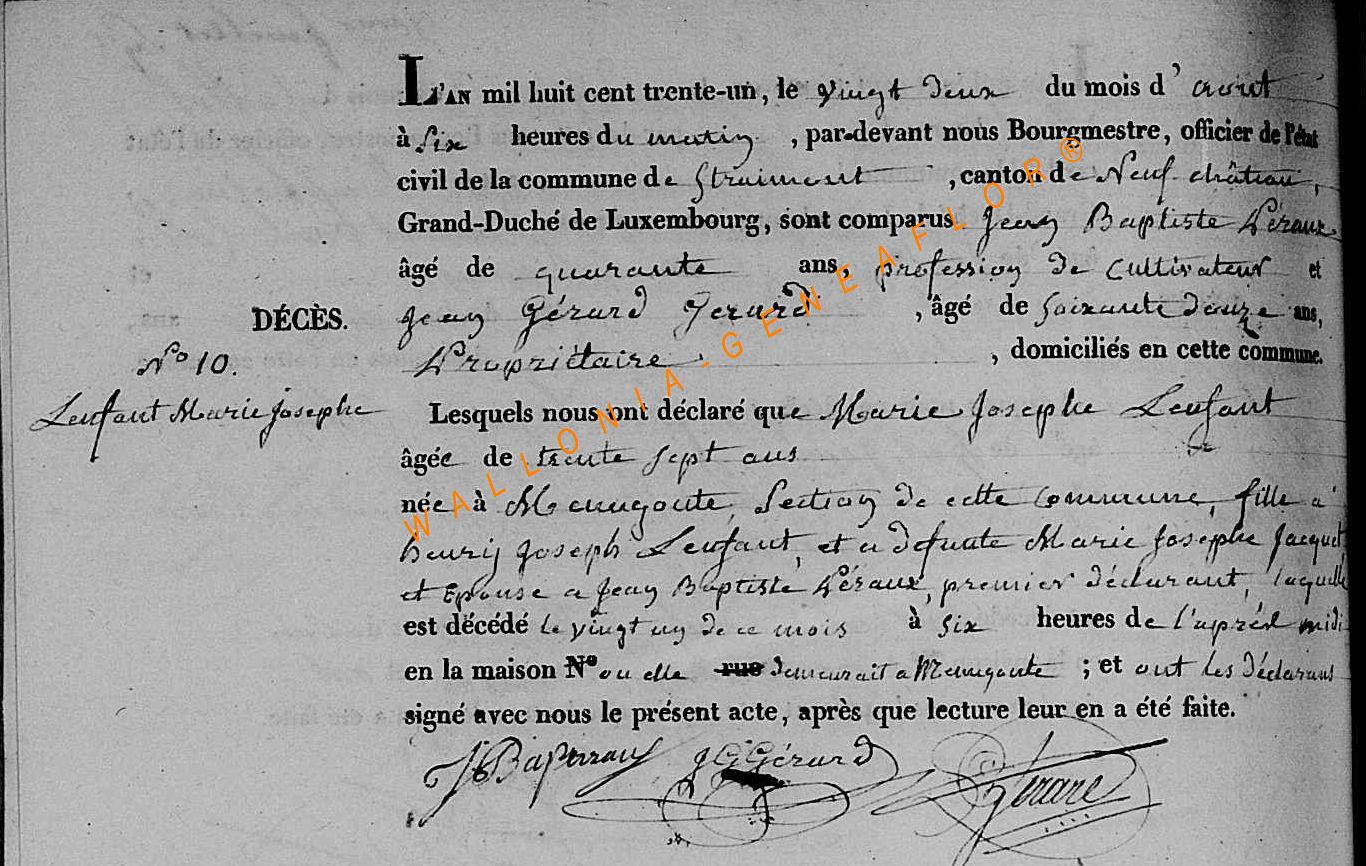 L'AN mil huit cent trente-un, le vingt deux du mois d'aout
à six heures du matin, par-devant nous Bourgmestre, officier de l'état
civil de la commune de Straimont, canton de Neufchâteau,
Grand-Duché de Luxembourg, sont comparus Jean Baptiste Péraux
âgé de quarante ans, profession de Cultivateur et
DÉCÈS.
Jean Gérard Gerard, âgé de soixante douze ans,
N° 10.
Propriétaire, domiciliés en cette commune.
Lenfant Marie Josephe
Lesquels nous ont déclaré que Marie Josephe Lenfant
âgée de trente sept ans
née à Menugoute, Section de cette Commune, fille a
henrij Joseph Lenfant, et a defunte Marie Josephe Jacquet
et Epouse a Jean Baptiste Péraux, premier déclarant, laquelle
est décédé le vingt un de ce mois à six heures de l'aprèd midi
en la maison N° ou elle rue demeurait a Menugoute ; et ont les déclarans
signé avec nous le présent acte, après que lecture leur en a été faite.
JBaPerraux JGGérard Gérard
WALLONIA-GENEAFLOR®